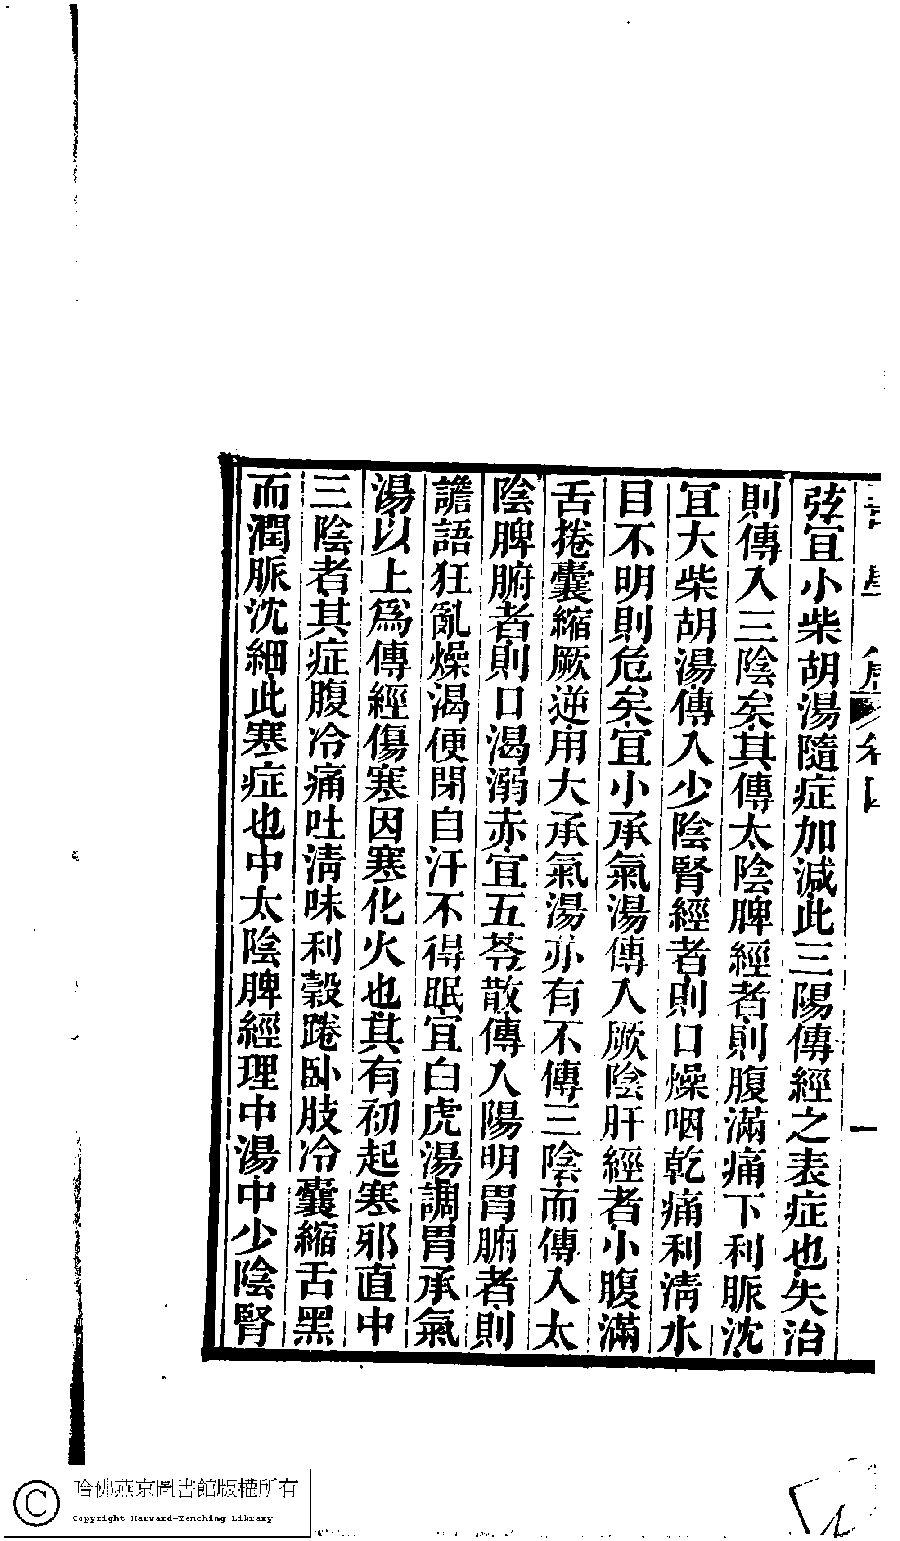 卷四
一
弦宜小柴胡湯隨症加減此三陽傳經之表症也失治
則傳入三陰矣其傳太陰脾經者則腹滿痛下利脈沈
宜大柴胡湯傳入少陰腎經者則口燥咽乾痛利清水
目不明則危矣宜小承氣湯傳入厥陰肝經者小腹滿
舌捲囊縮厥逆用大承氣湯亦有不傳三陰而傳入太
陰脾腑者則口渴溺赤宜五苓散傳入陽明胃腑者則
譫語狂亂燥渴便閉自汗不得眠宜白虎湯調胃承氣
湯以上爲傳經傷寒因寒化火也其有初起寒邪直中
三陰者其症腹冷痛吐清味利穀踡臥肢冷囊縮舌黑
而潤脈沈細此寒症也中太陰脾經理中湯中少陰腎
哈佛燕京圖書館版權所有
Copyright Harvard-Yenching Library